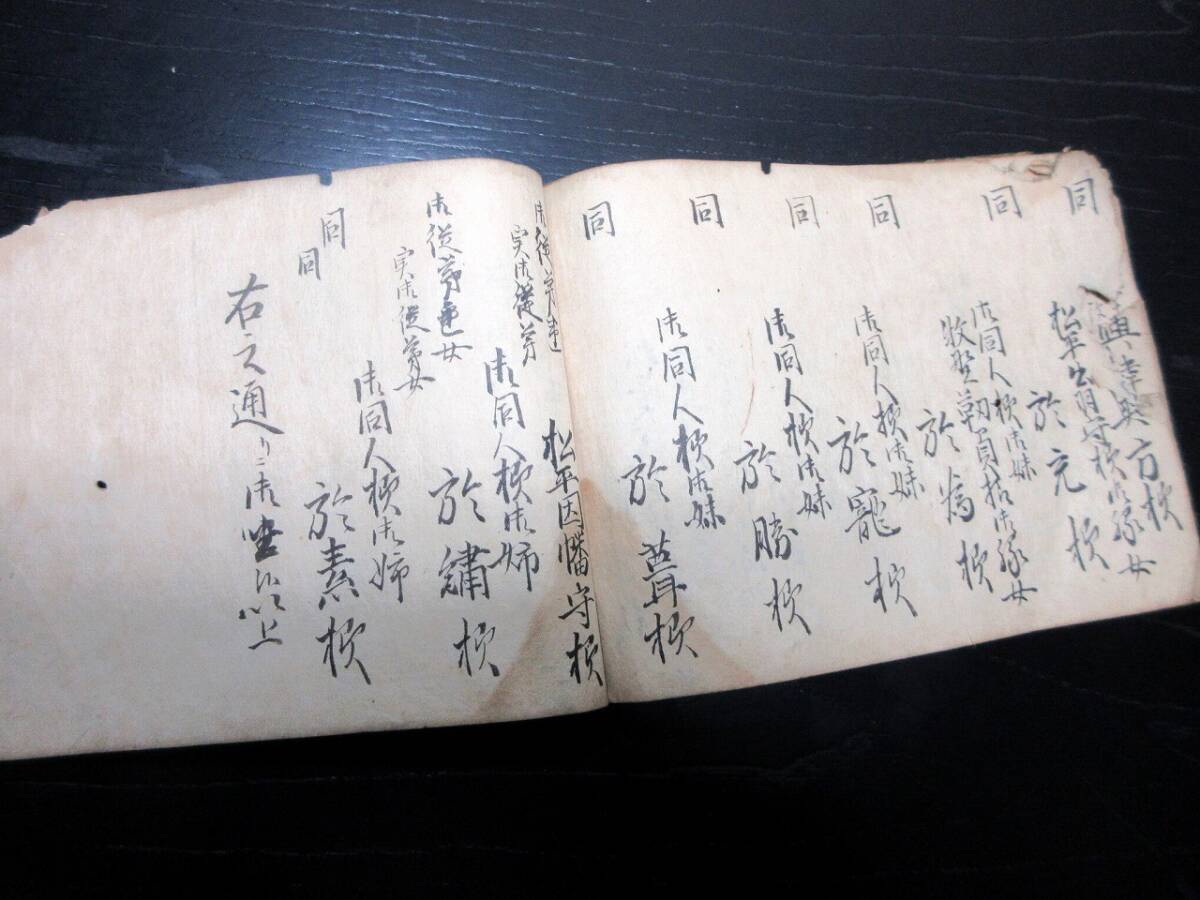 同
方様
松平出羽守様御縁女
於元様
同
御同人様御妹
牧野靱負様御縁女
於為様
同
御同人様御妹
於寵様
同
御同人様御妹
於勝様
同
御同人様御妹
於
様
同
御従弟違
実御従弟
松平因幡守様
御従弟違女
実御従弟女
御同人様御姉
於繡様
同
同
御同人様御姉
於素様
右之通り御座候以上